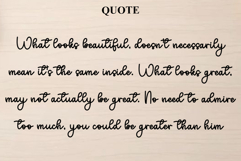 QUOTE
What looks beautiful, doesn't necessarily
mean it's the same inside. What looks great,
may not actually be great. No need to admire
too much, you could be greater than him